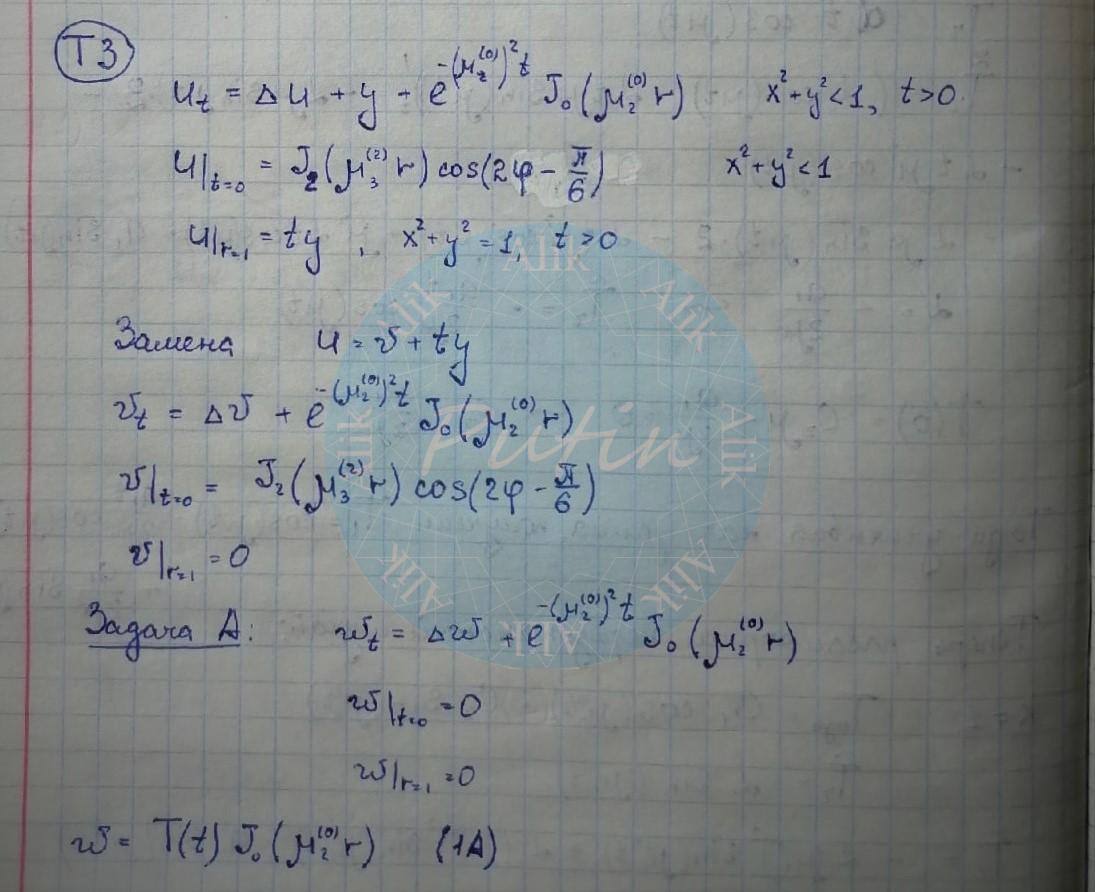 T3
u_t = Δu + y + e^{-(μ_2^{(0)})^2 t} J_0(μ_2^{(0)} r)   x²+y²<1, t>0
u|_{t=0} = J_2(μ_3^{(2)} r) cos(2φ - π/6)   x²+y²<1
u|_{r=1} = ty, x²+y²=1, t>0
Замена   u = v + ty
v_t = Δv + e^{-(μ_2^{(0)})^2 t} J_0(μ_2^{(0)} r)
v|_{t=0} = J_2(μ_3^{(2)} r) cos(2φ - π/6)
v|_{r=1} = 0
Задача A:   w_t = Δw + e^{-(μ_2^{(0)})^2 t} J_0(μ_2^{(0)} r)
w|_{t=0} = 0
w|_{r=1} = 0
w = T(t) J_0(μ_2^{(0)} r)   (1A)
Putin
Alik
Alik
Alik
Alik
Alik
Alik
Alik
Alik